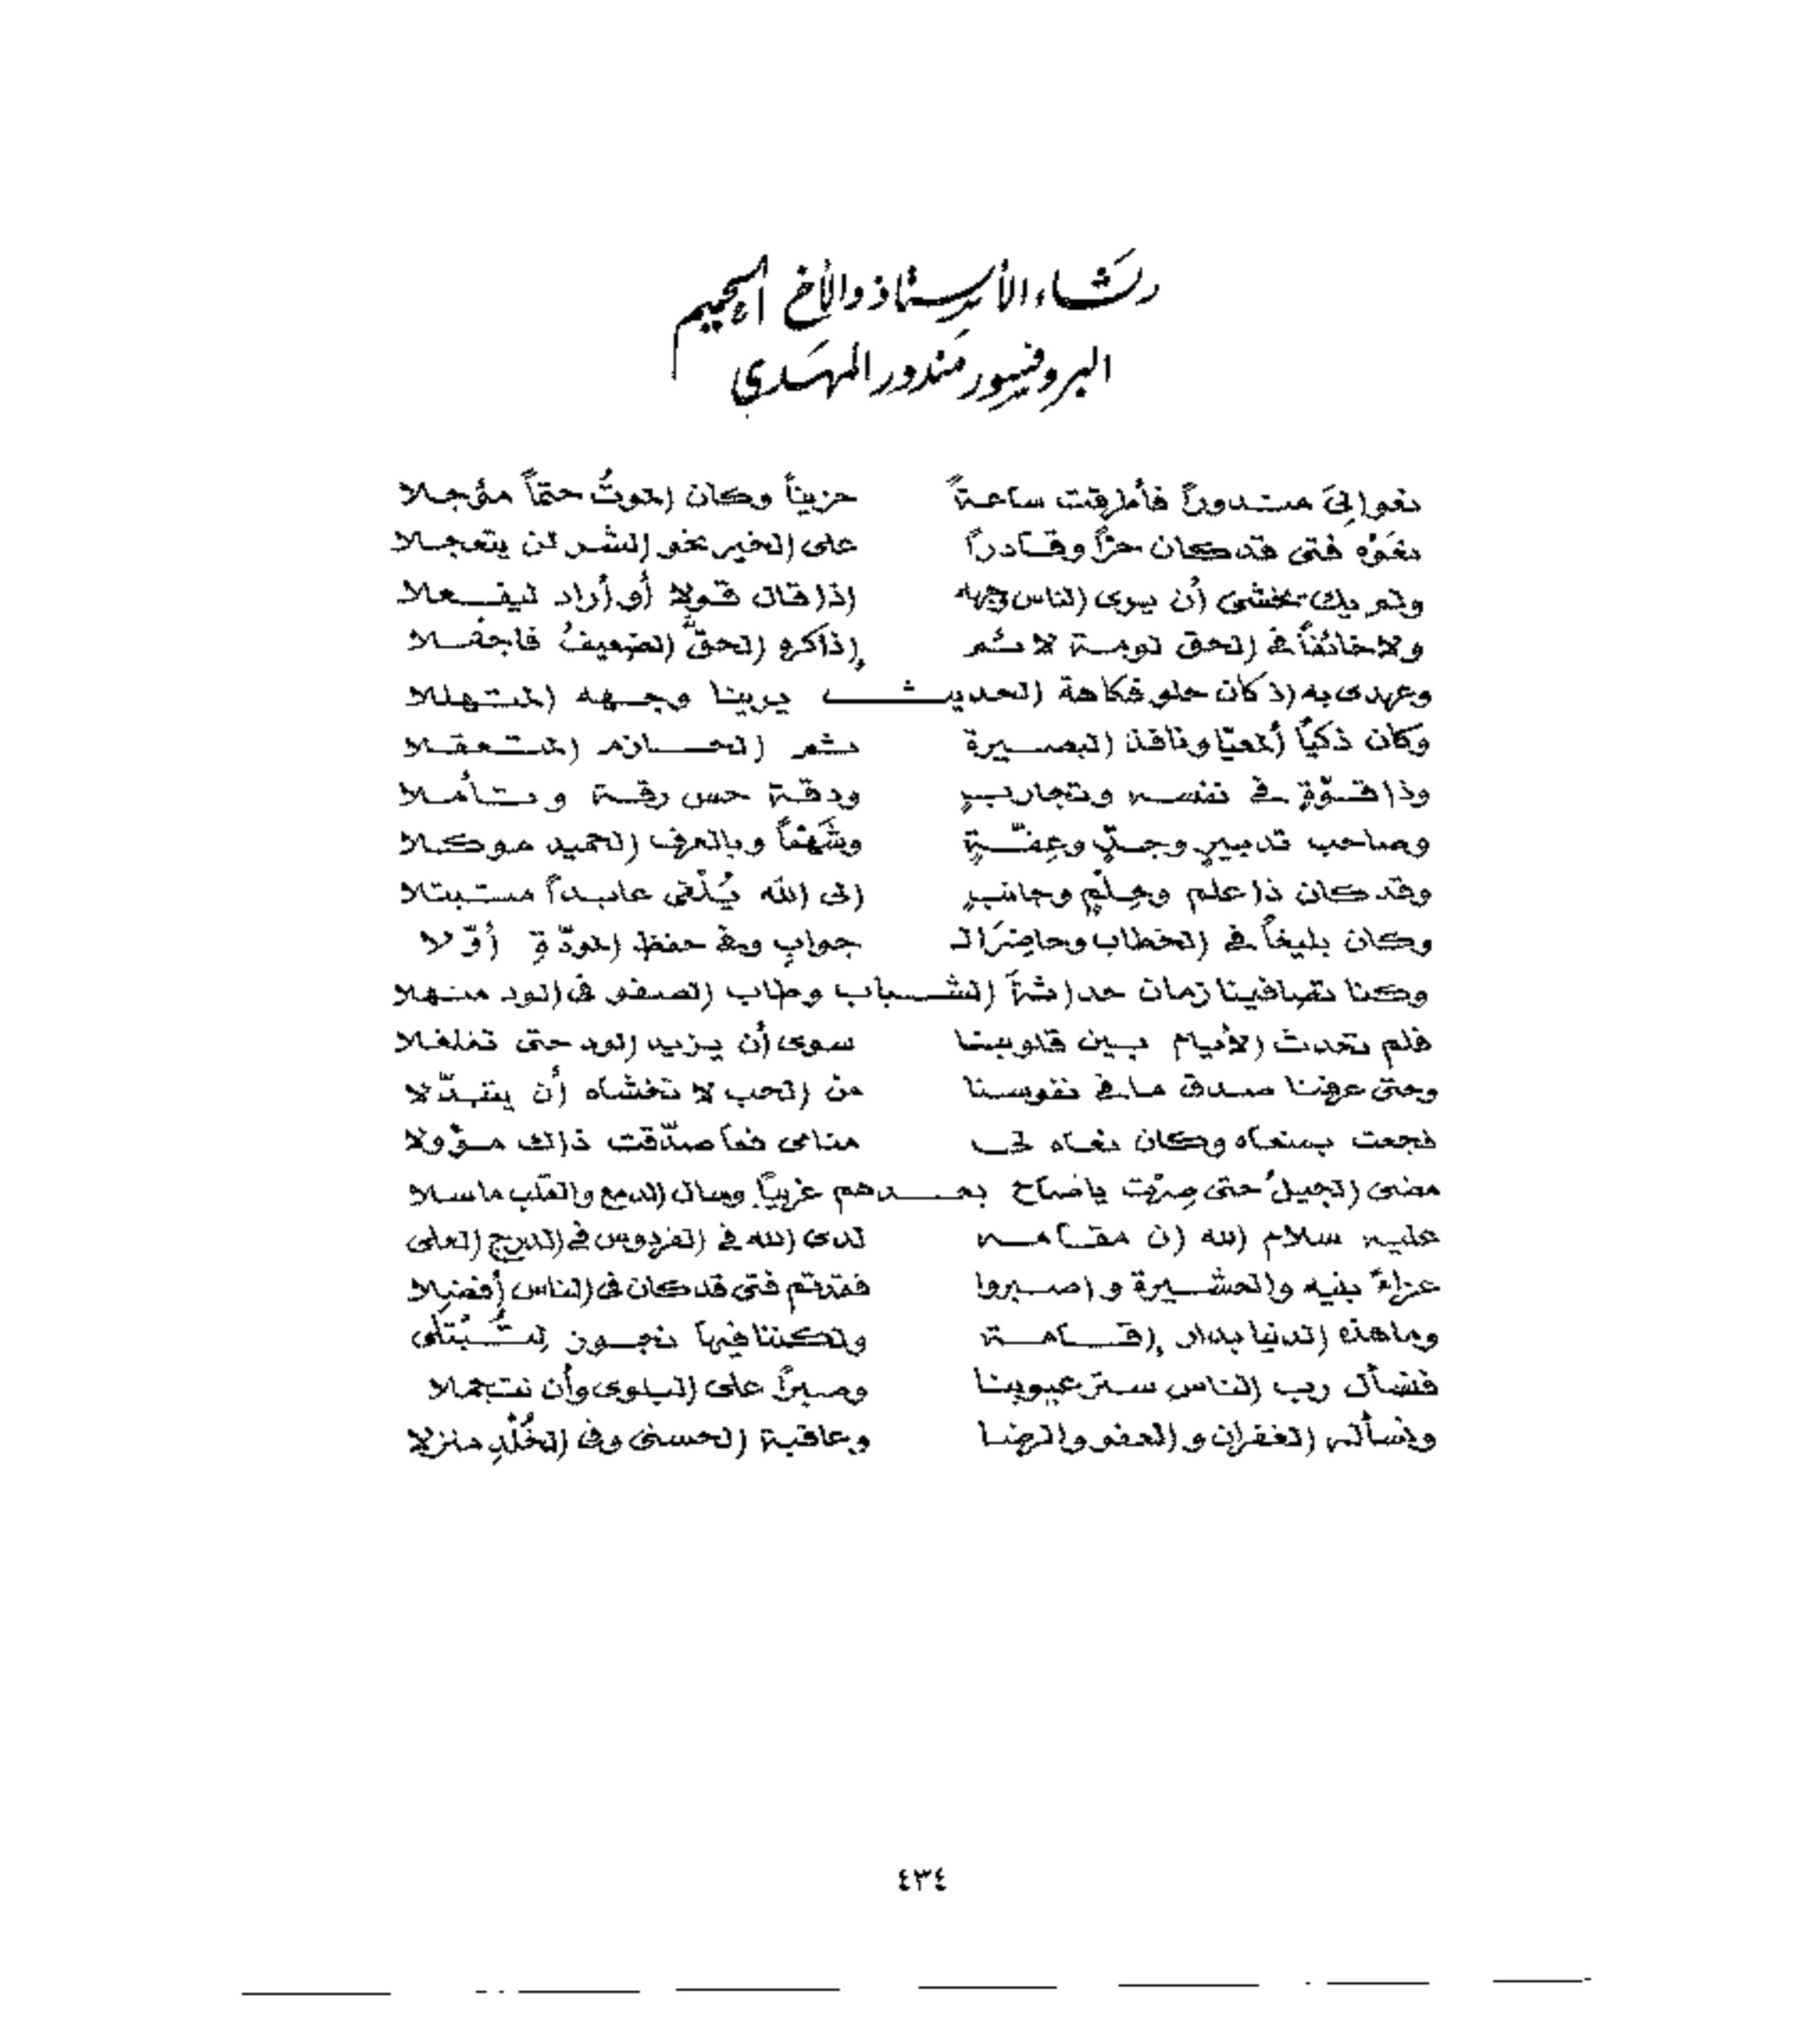 رثاء الأستاذ والأخ الحميم
البروفيسور مندور المهدي
نعوا لِيَ مندوراً فأطرقت ساعةً حزيناً وكان الموتُ حتماً مؤجلا
نعَوْه فتى قد كان حرّاً وقادراً على الخير نحو الشر لن يتعجلا
ولم يك يخشى أن يرى الناس وجهه إذا قال قولا أو أراد ليفعلا
ولا خائفاً في الحق لومة لائم إذا كره الحقَّ الضعيفُ فاجفلا
وعهدى به اذ كان حلو فكاهة الحديث يرينا وجهه المتهللا
وكان ذكيّاً ألمعيّا ونافذ البصيرة ثم الحازم المتعقلا
وذا قوّةٍ في نفسه وتجاربٍ ودقة حس رقة وتأملا
وصاحب تدبيرٍ وجدٍّ وعِفّةٍ وشَهْماً وبالعرف الحميد موكلا
وقد كان ذا علم وحِلْمٍ وجانبٍ الى الله يُلْفى عابداً مستبتلا
وكان بليغاً في الخطاب وحاضِرَ الـ جوابِ وفي حفظ المودّةِ أوّلا
وكنا تصافينا زمان حداثةَ الشباب وطاب الصفو فى الود منهلا
فلم تحدث الأيام بين قلوبنا سوى أن يزيد الود حتى تغلغلا
وحتى عرفنا صدق ما في نفوسنا من الحب لا تخشاه أن يتبدّلا
فجعت بمنعاه وكان نعاه لى منامى فما صدّقت ذاك مؤولا
مضى الجيلُ حتى صِرْت ياصَاح بعدهم غريباً وسال الدمع والقلب ماسلا
عليه سلام الله ان مقامه لدى الله في الفردوس في الدرج العلى
عزاءً بنيه والعشيرة واصبروا فقدتم فتى قد كان فى الناس أفضلا
وما هذه الدنيا بدار إقامة ولكننا فيها نجون لنُبْتَلَى
فنسأل رب الناس ستر عيوبنا وصبراً على البلوى وأن نتجملا
ونسأله الغفران والعفو والهنا وعاقبة الحسنى وفى الخُلْدِ منزلا
٤٣٤